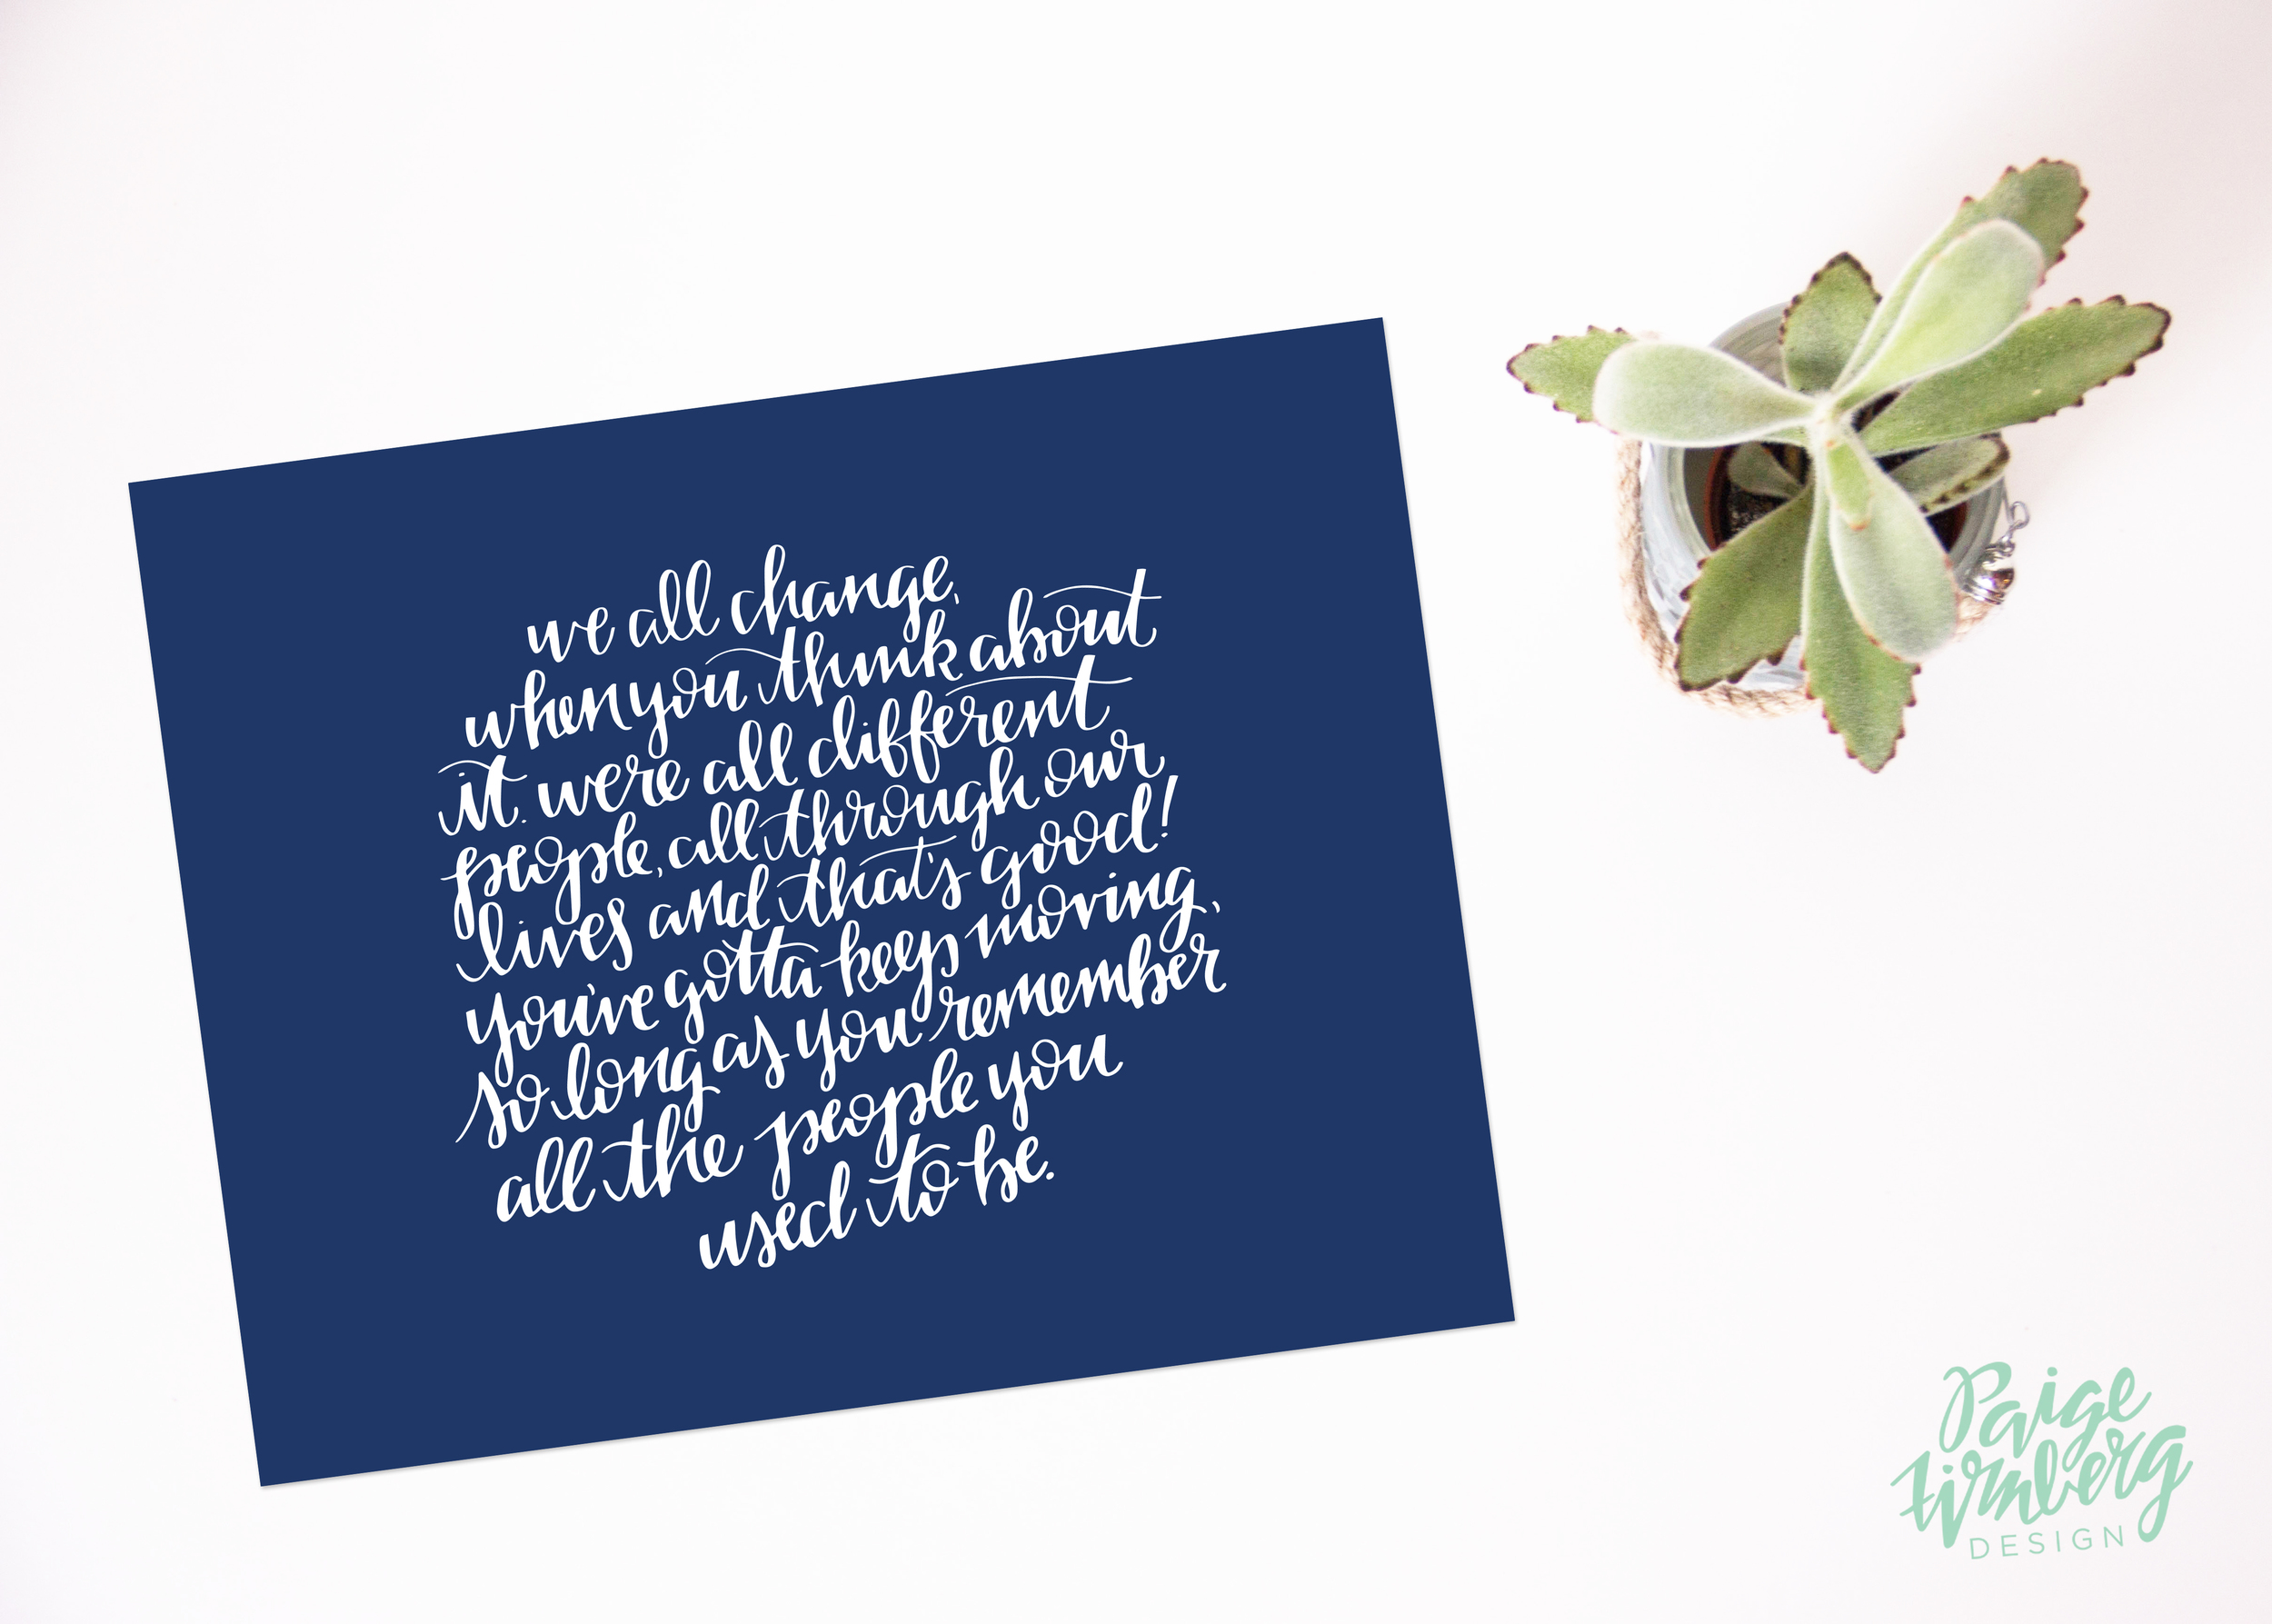 we all change,
when you think about
it. we're all different
people, all through our
lives and that's good!
you've gotta keep moving,
so long as you remember
all the people you
used to be.
Paige
Firnberg
DESIGN